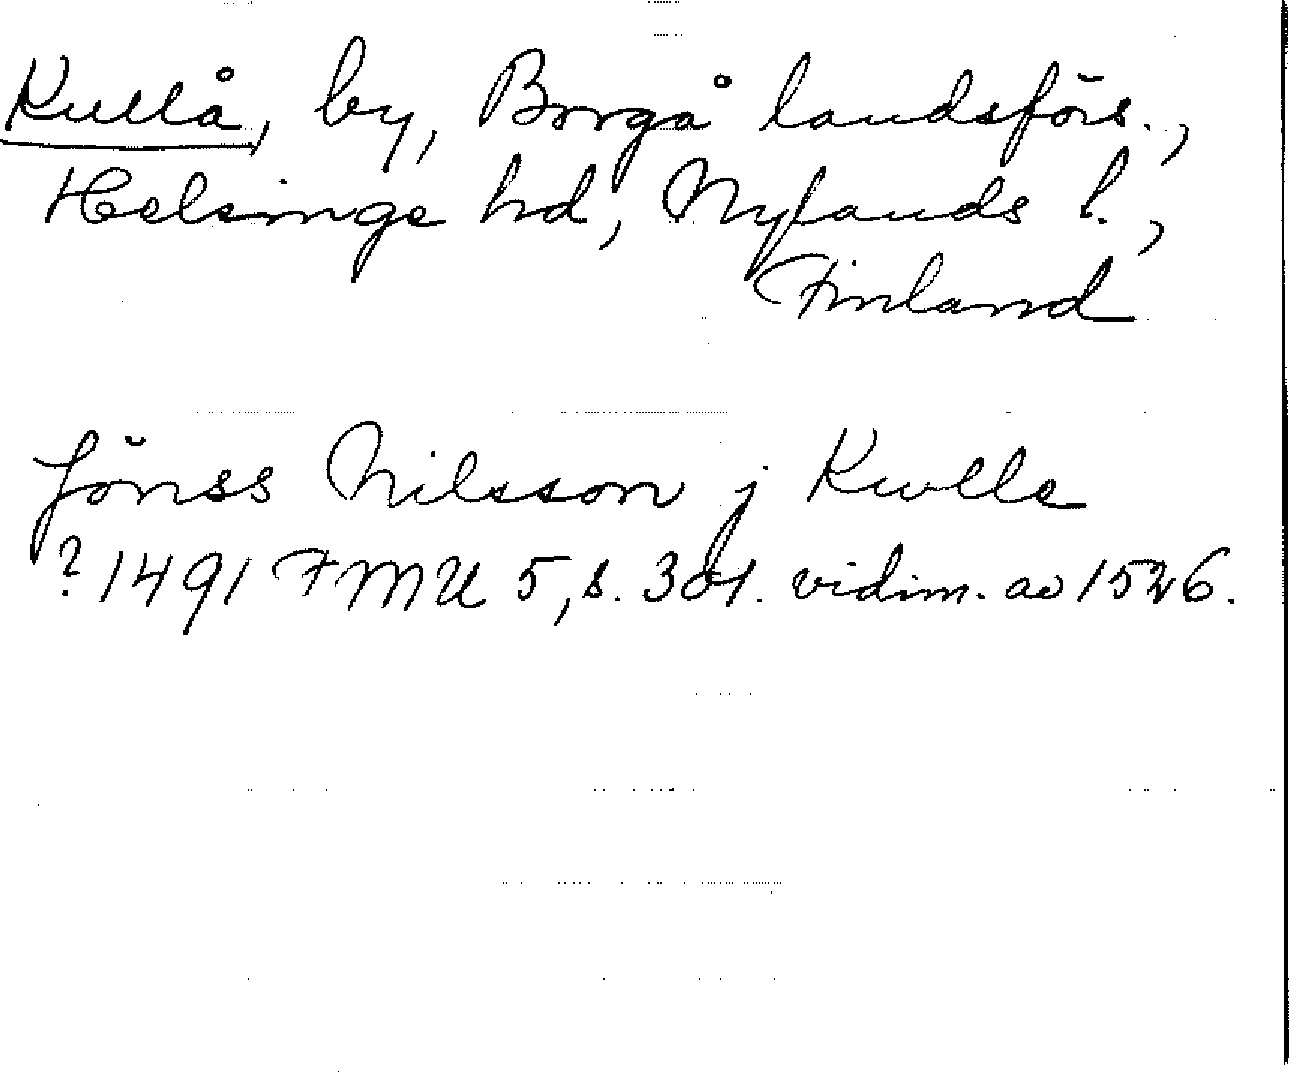 Kullå, by, Borgå landsförs.,
Helsinge hd, Nylands l.,
Finland
Jönss Nilsson j Kwlla
? 1491 FMU 5, s. 301. vidim. av 1526.